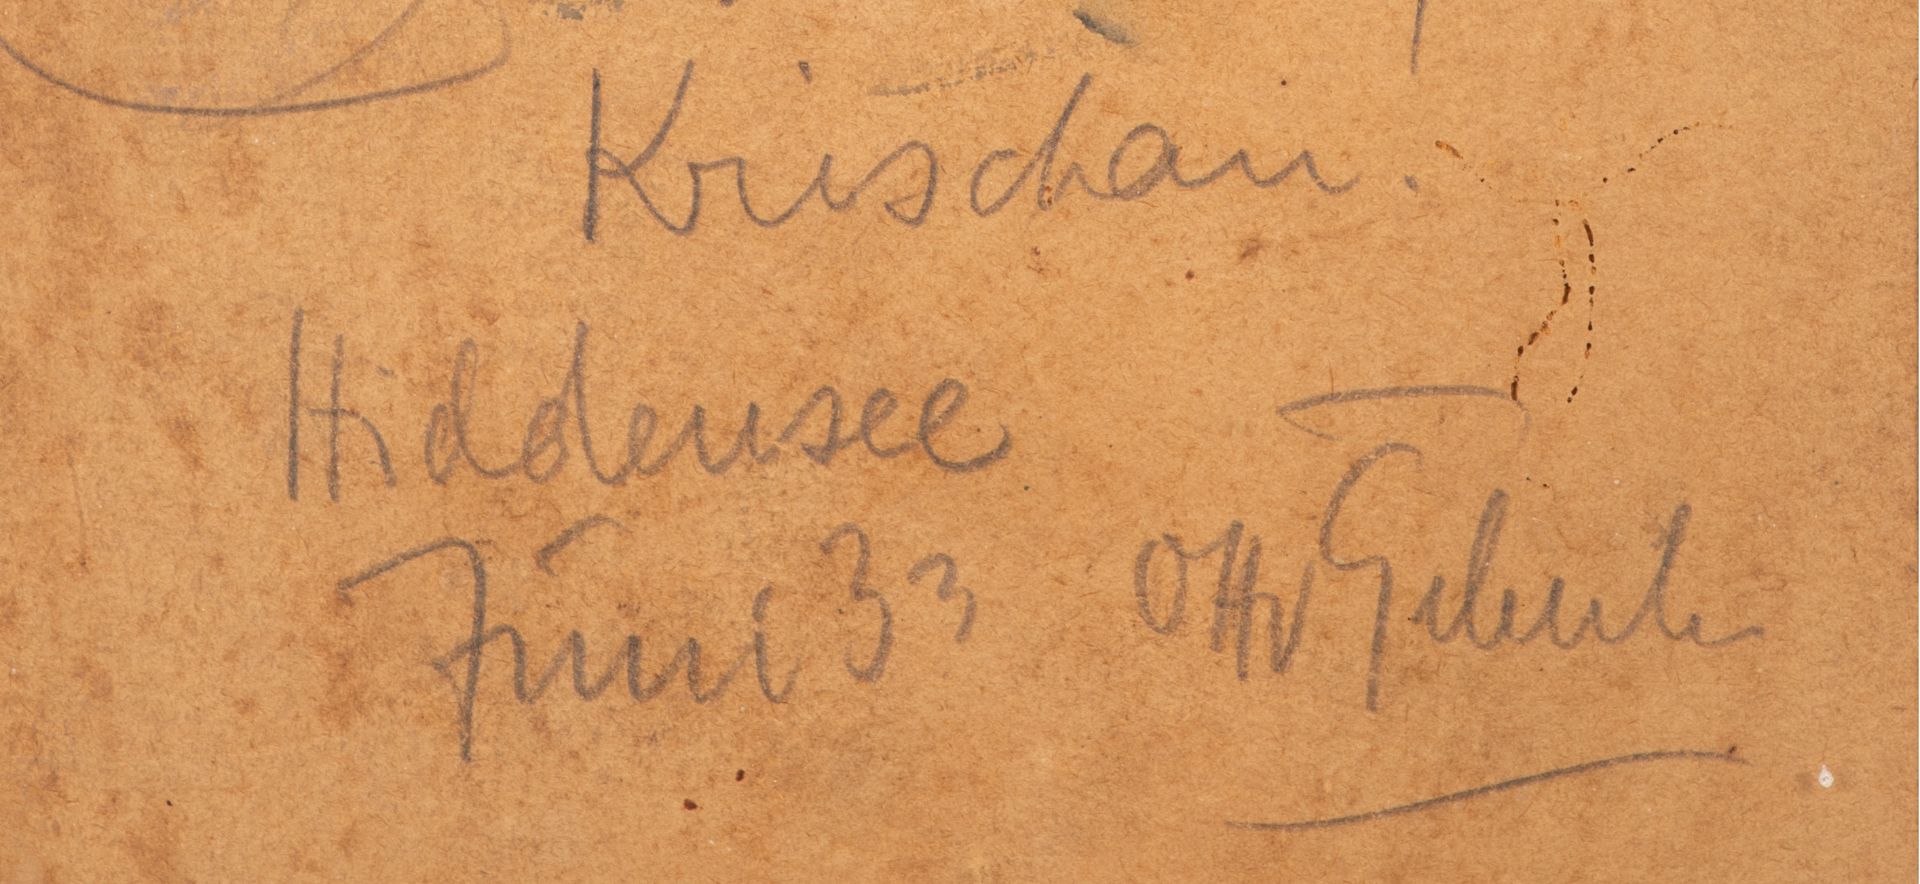 Krischan.
Hiddensee
Juni 33 Otto